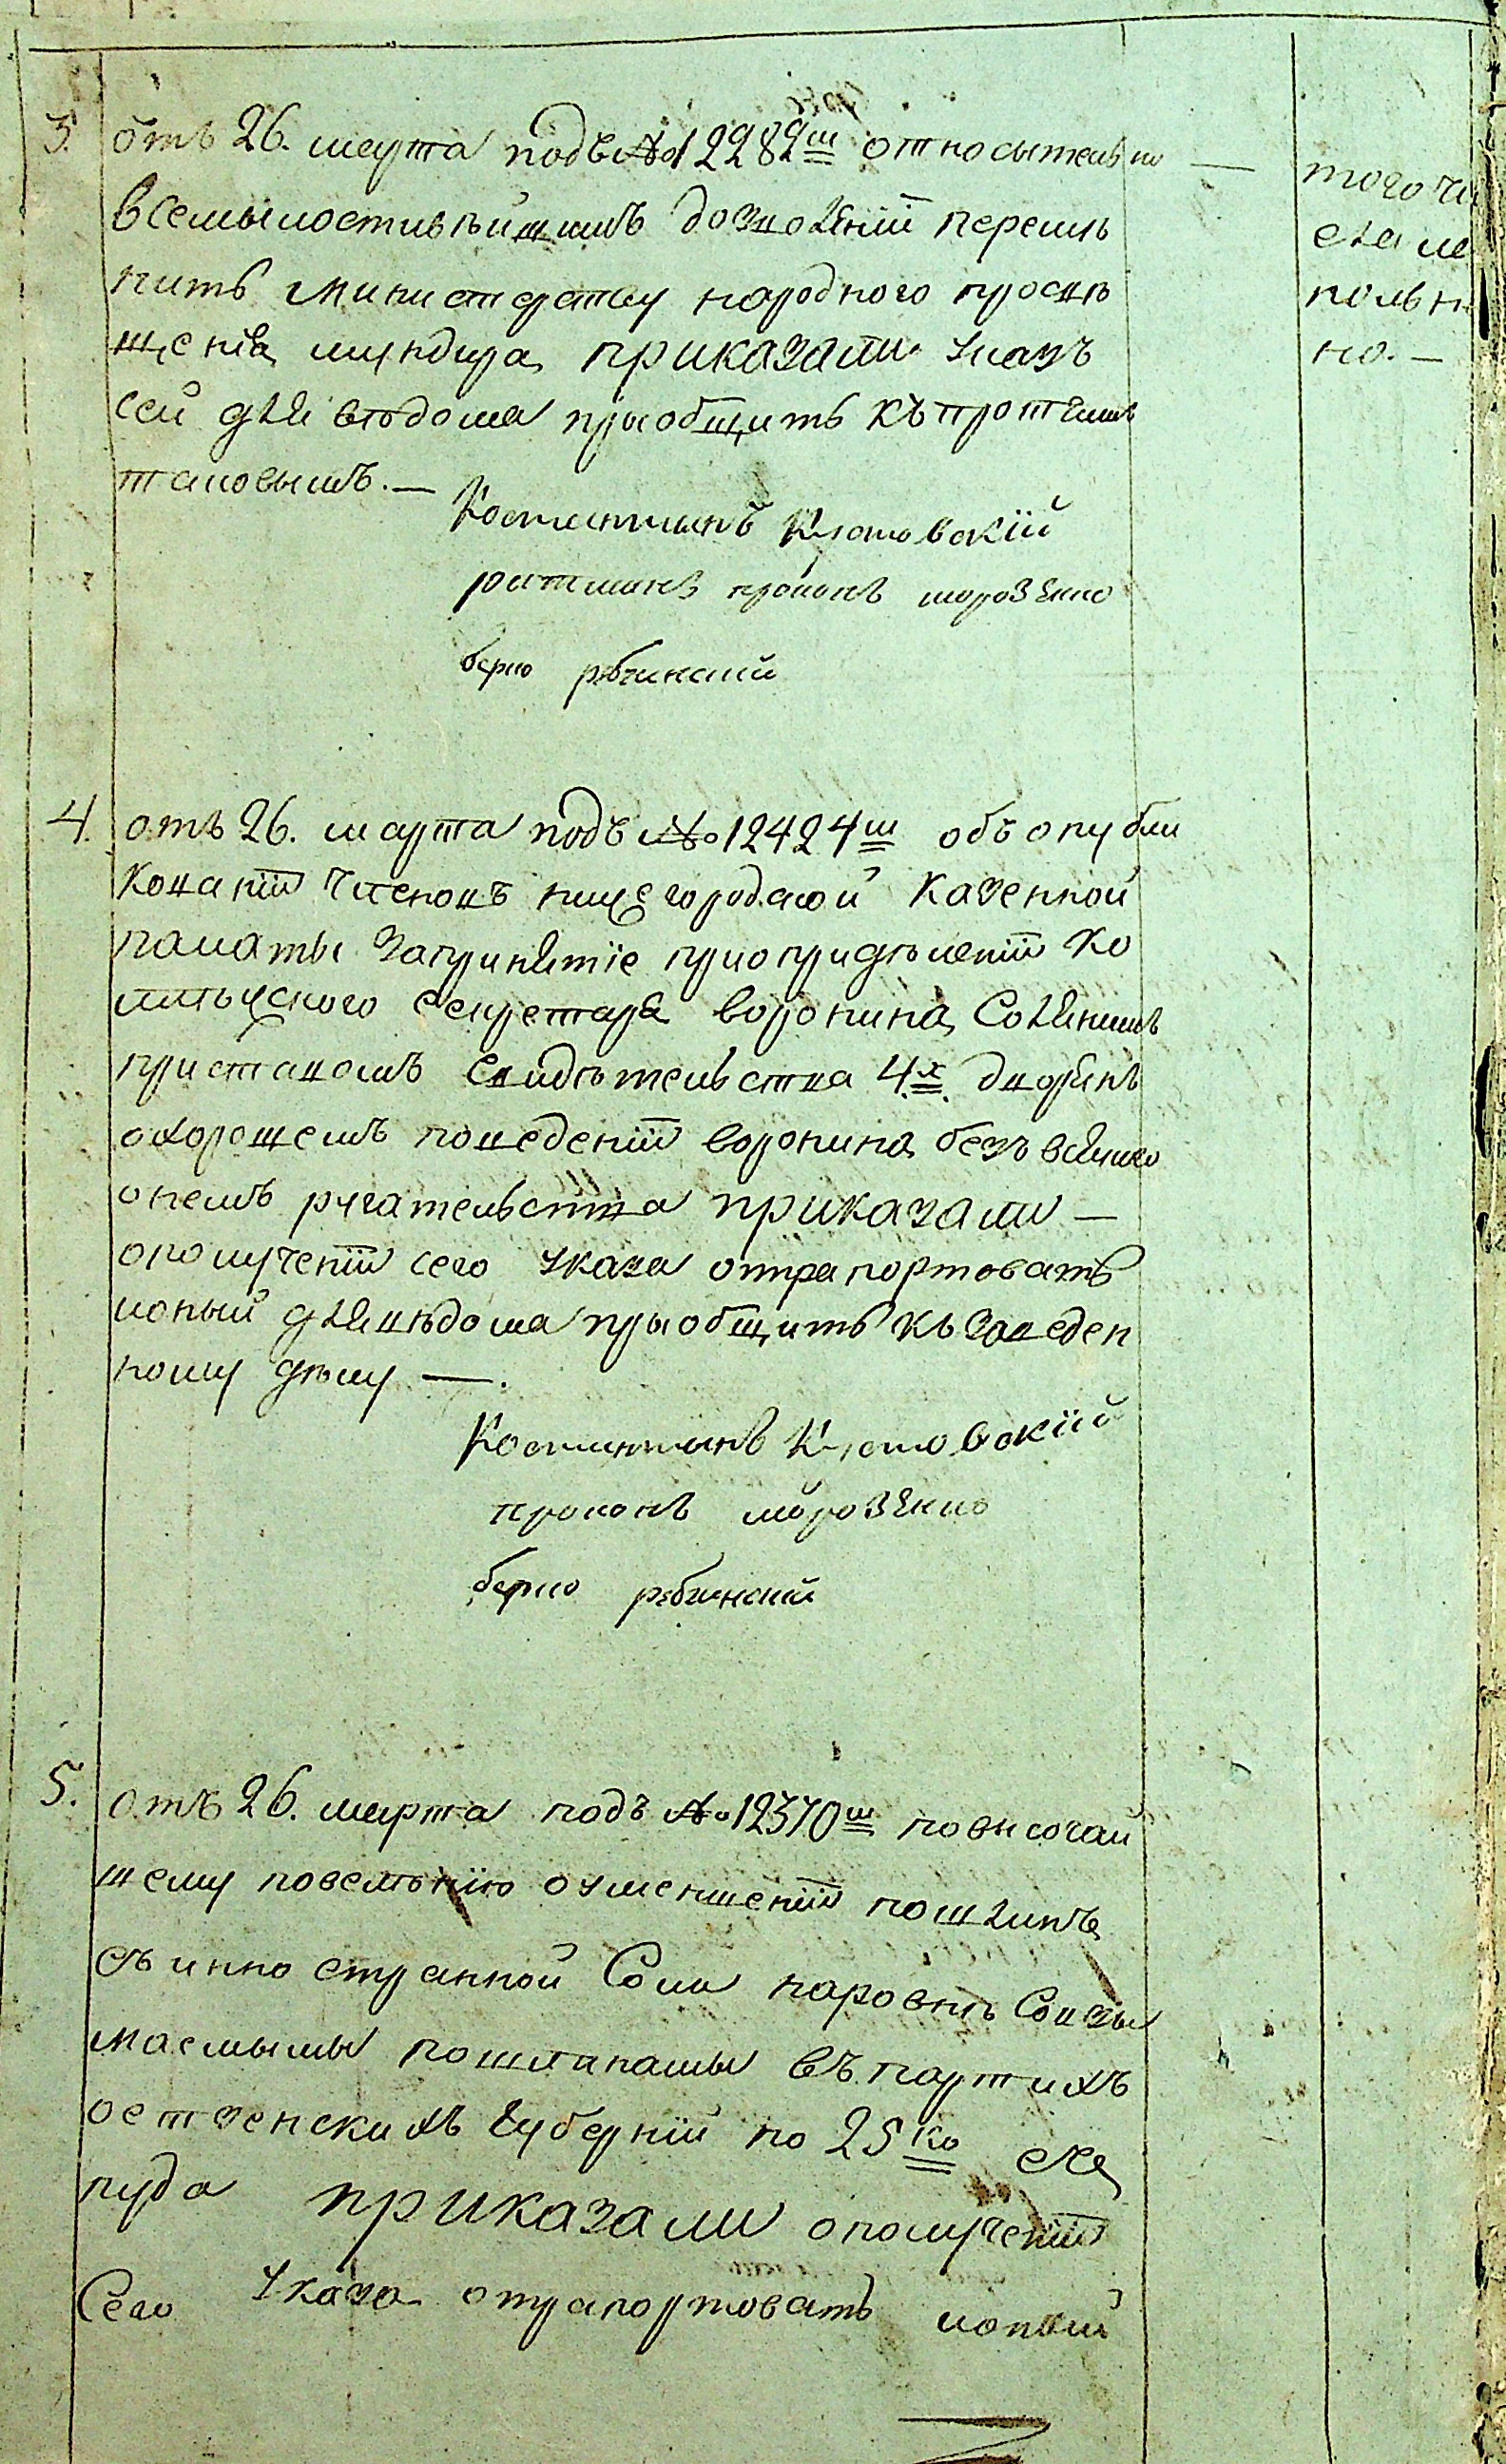 3. отъ 26. марта подъ № 12282м относытельно
всемылостивѣйшимъ дозволеніи перемѣ
нить министерству народного просвѣ
щенія мундира, приказали указъ
сей для вѣдома прыобщить къ протчимъ
таковымъ. —
Костантынъ Кротовскій
ратманъ прокопъ морозенко
берко рѣбчинский
того чи
сла ис
полне
но. —
4. отъ 26. марта подъ № 12424м объ опубли
кованіи членовъ нижегородской казенной
палаты запринятіе приопридѣленіи ко
лижского секретара воронина, Солянимъ
приставомъ свидѣтельства 4х. дворянъ
охорошемъ поведеніи воронина, безъ всякого
онемъ ручательства приказали —
ополученіи сего указа отрапортовать
ионый для вѣдома прыобщить къ заведен
ному дѣлу —.
Костантынъ Кротовскій
прокопъ морозенко
берко рѣбчинский
5. отъ 26. марта подъ № 12370м повысочай
шему повелѣнію оуменшеніи пошлинъ,
съ инностранной Соли наровнѣ Совзы
маемымы пошлинамы въ партихъ
остзенскихъ губерній по 25 ко сже
пуда приказали ополученіи
Сего указа отрапортовать ионый